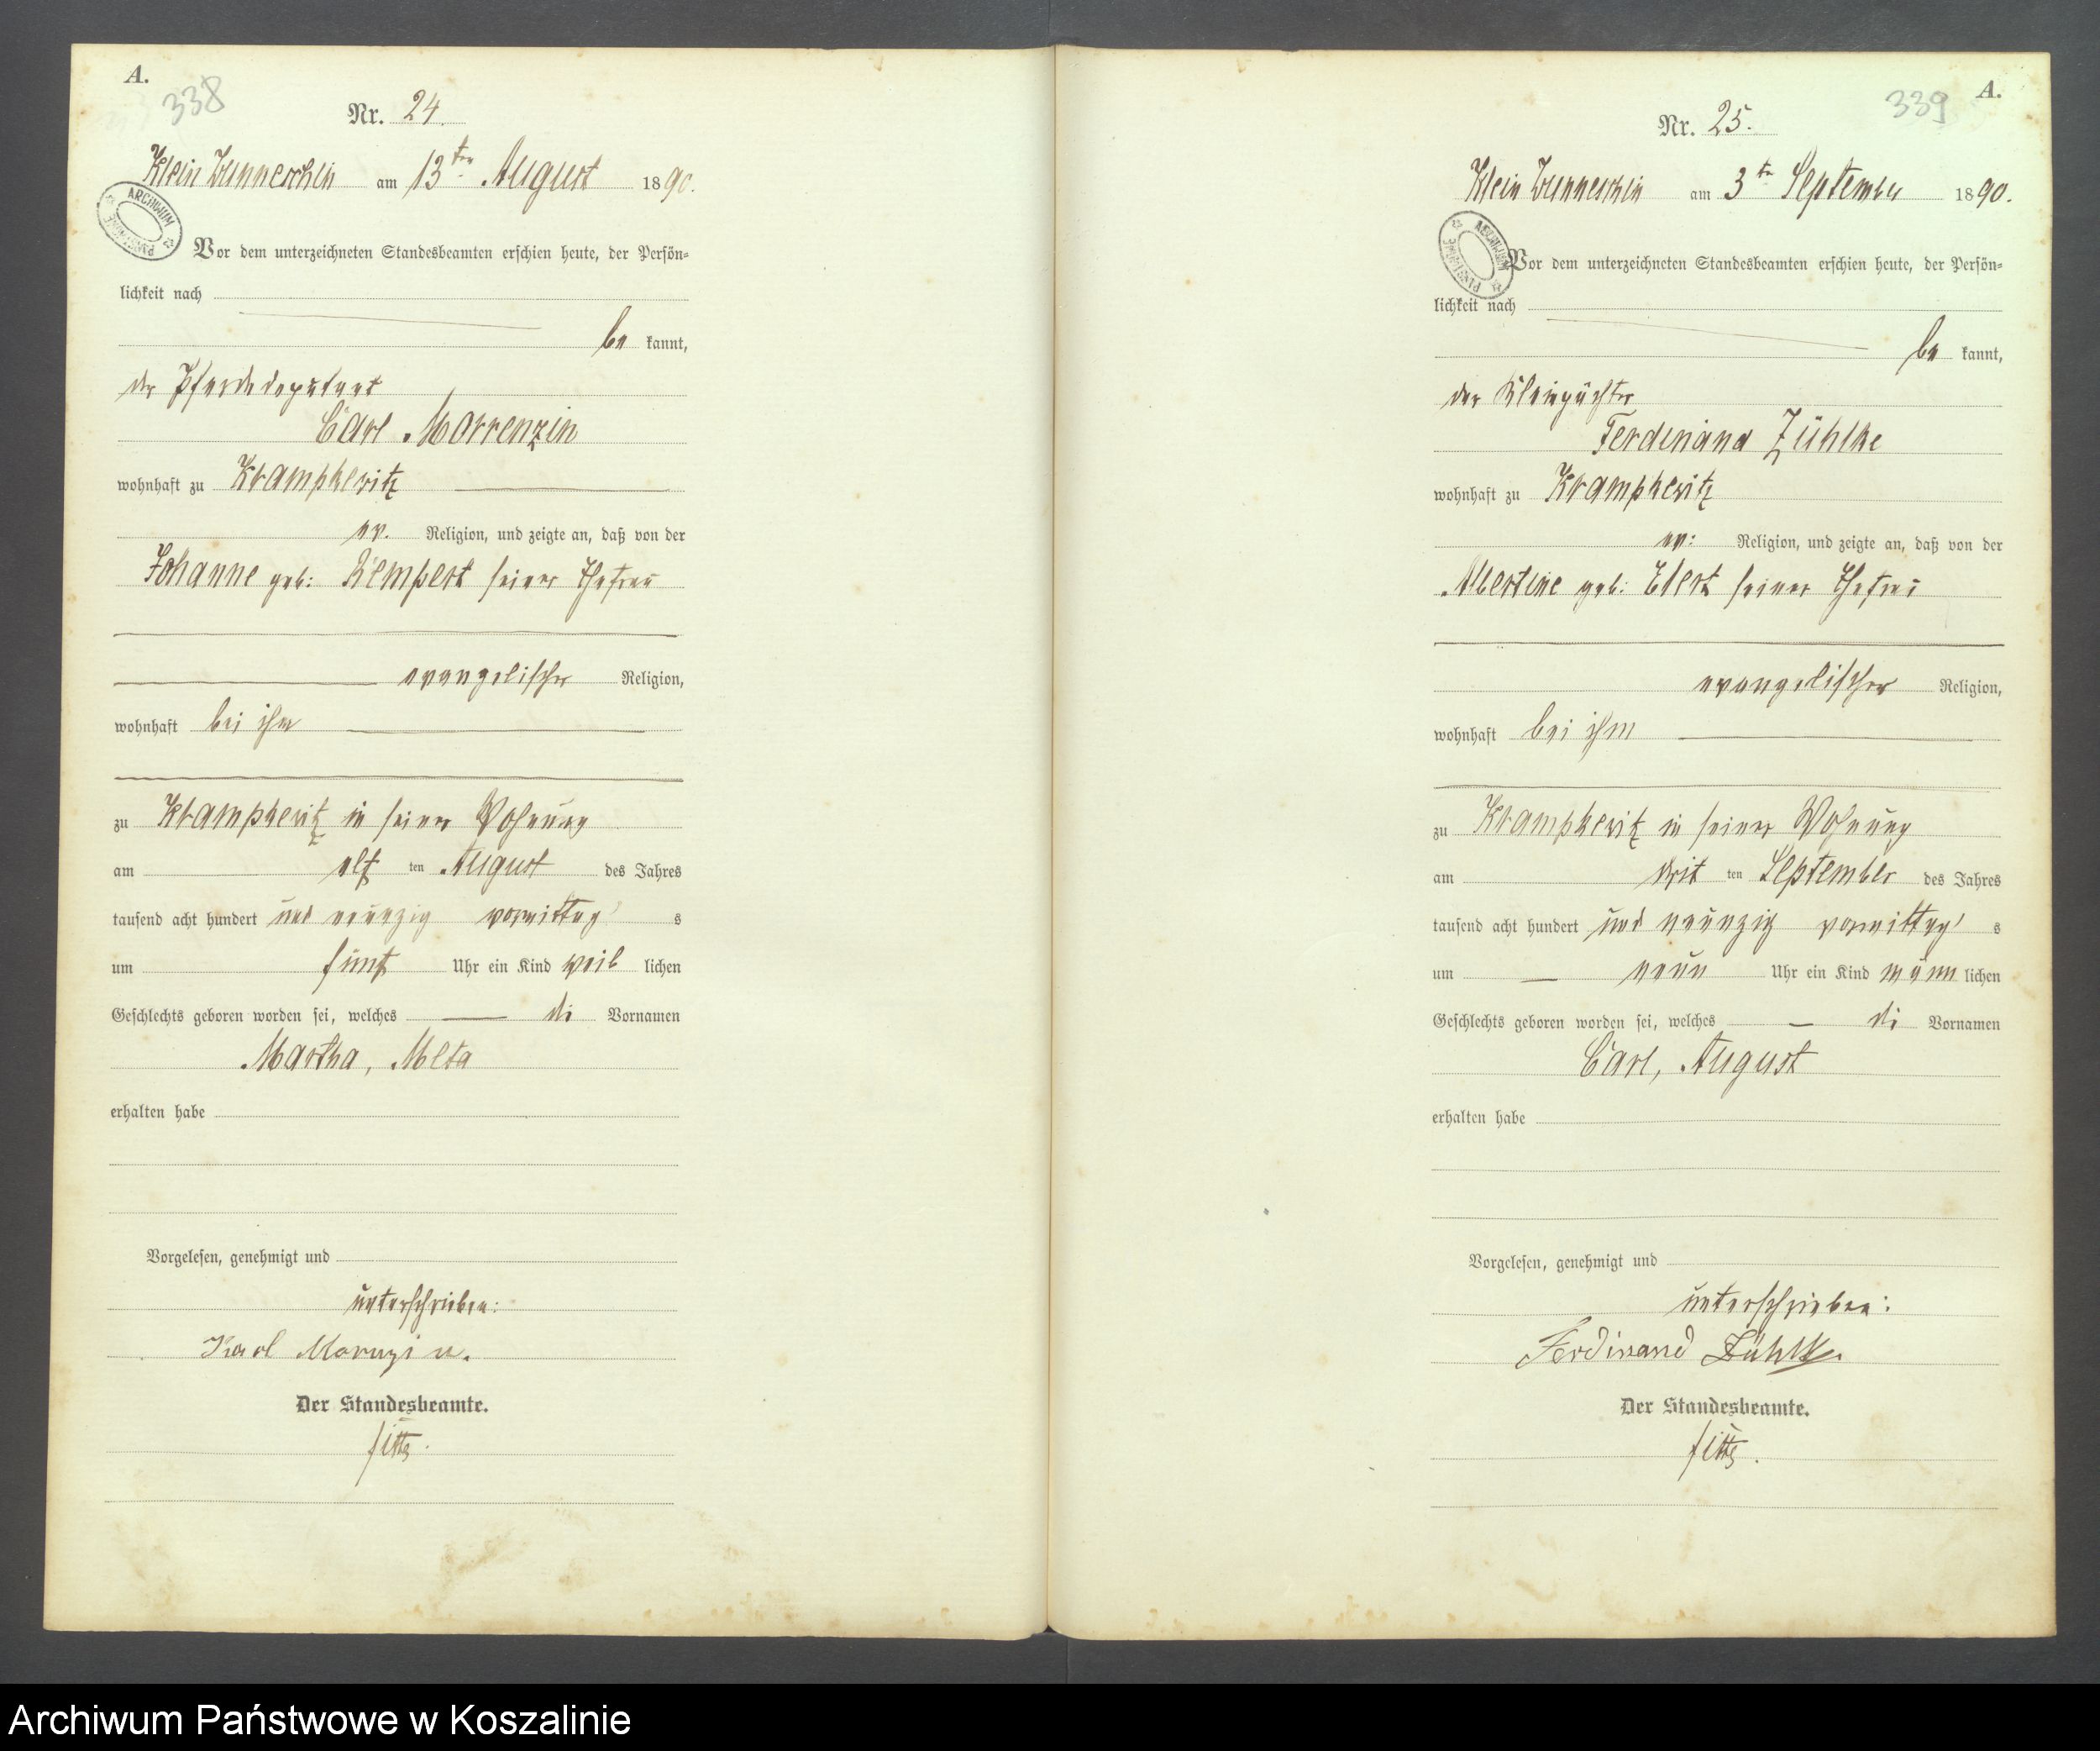 A.
338
Nr. 24.
Klein Wunneschin am 13ten August 1890.
ARCHIWUM PAŃSTWOWE
Vor dem unterzeichneten Standesbeamten erschien heute, der Persön-
lichkeit nach
be kannt,
der Pferdedeputant
Carl Morrenzin
wohnhaft zu Krampkewitz
ev. Religion, und zeigte an, daß von der
Johanne geb: Rempert seiner Ehefrau
evangelischer Religion,
wohnhaft bei ihm
zu Krampkewitz in seiner Wohnung
am elf ten August des Jahres
tausend acht hundert und neunzig vormittag s
um fünf Uhr ein Kind weib lichen
Geschlechts geboren worden sei, welches di Vornamen
Martha, Meta
erhalten habe
Vorgelesen, genehmigt und
unterschrieben:
Karl Mornzin.
Der Standesbeamte.
A.
339
Nr. 25.
Klein Wunneschin am 3ten September 1890.
ARCHIWUM PAŃSTWOWE
Vor dem unterzeichneten Standesbeamten erschien heute, der Persön-
lichkeit nach
be kannt,
der Kleinpächter
Ferdinand Zühlke
wohnhaft zu Krampkewitz
ev: Religion, und zeigte an, daß von der
Albertine geb: Elert seiner Ehefrau
evangelischer Religion,
wohnhaft bei ihm
zu Krampkewitz in seiner Wohnung
am drit ten September des Jahres
tausend acht hundert und neunzig vormittag s
um neun Uhr ein Kind männ lichen
Geschlechts geboren worden sei, welches di Vornamen
Carl, August
erhalten habe
Vorgelesen, genehmigt und
unterschrieben:
Ferdinand Zühlke.
Der Standesbeamte.
Archiwum Państwowe w Koszalinie